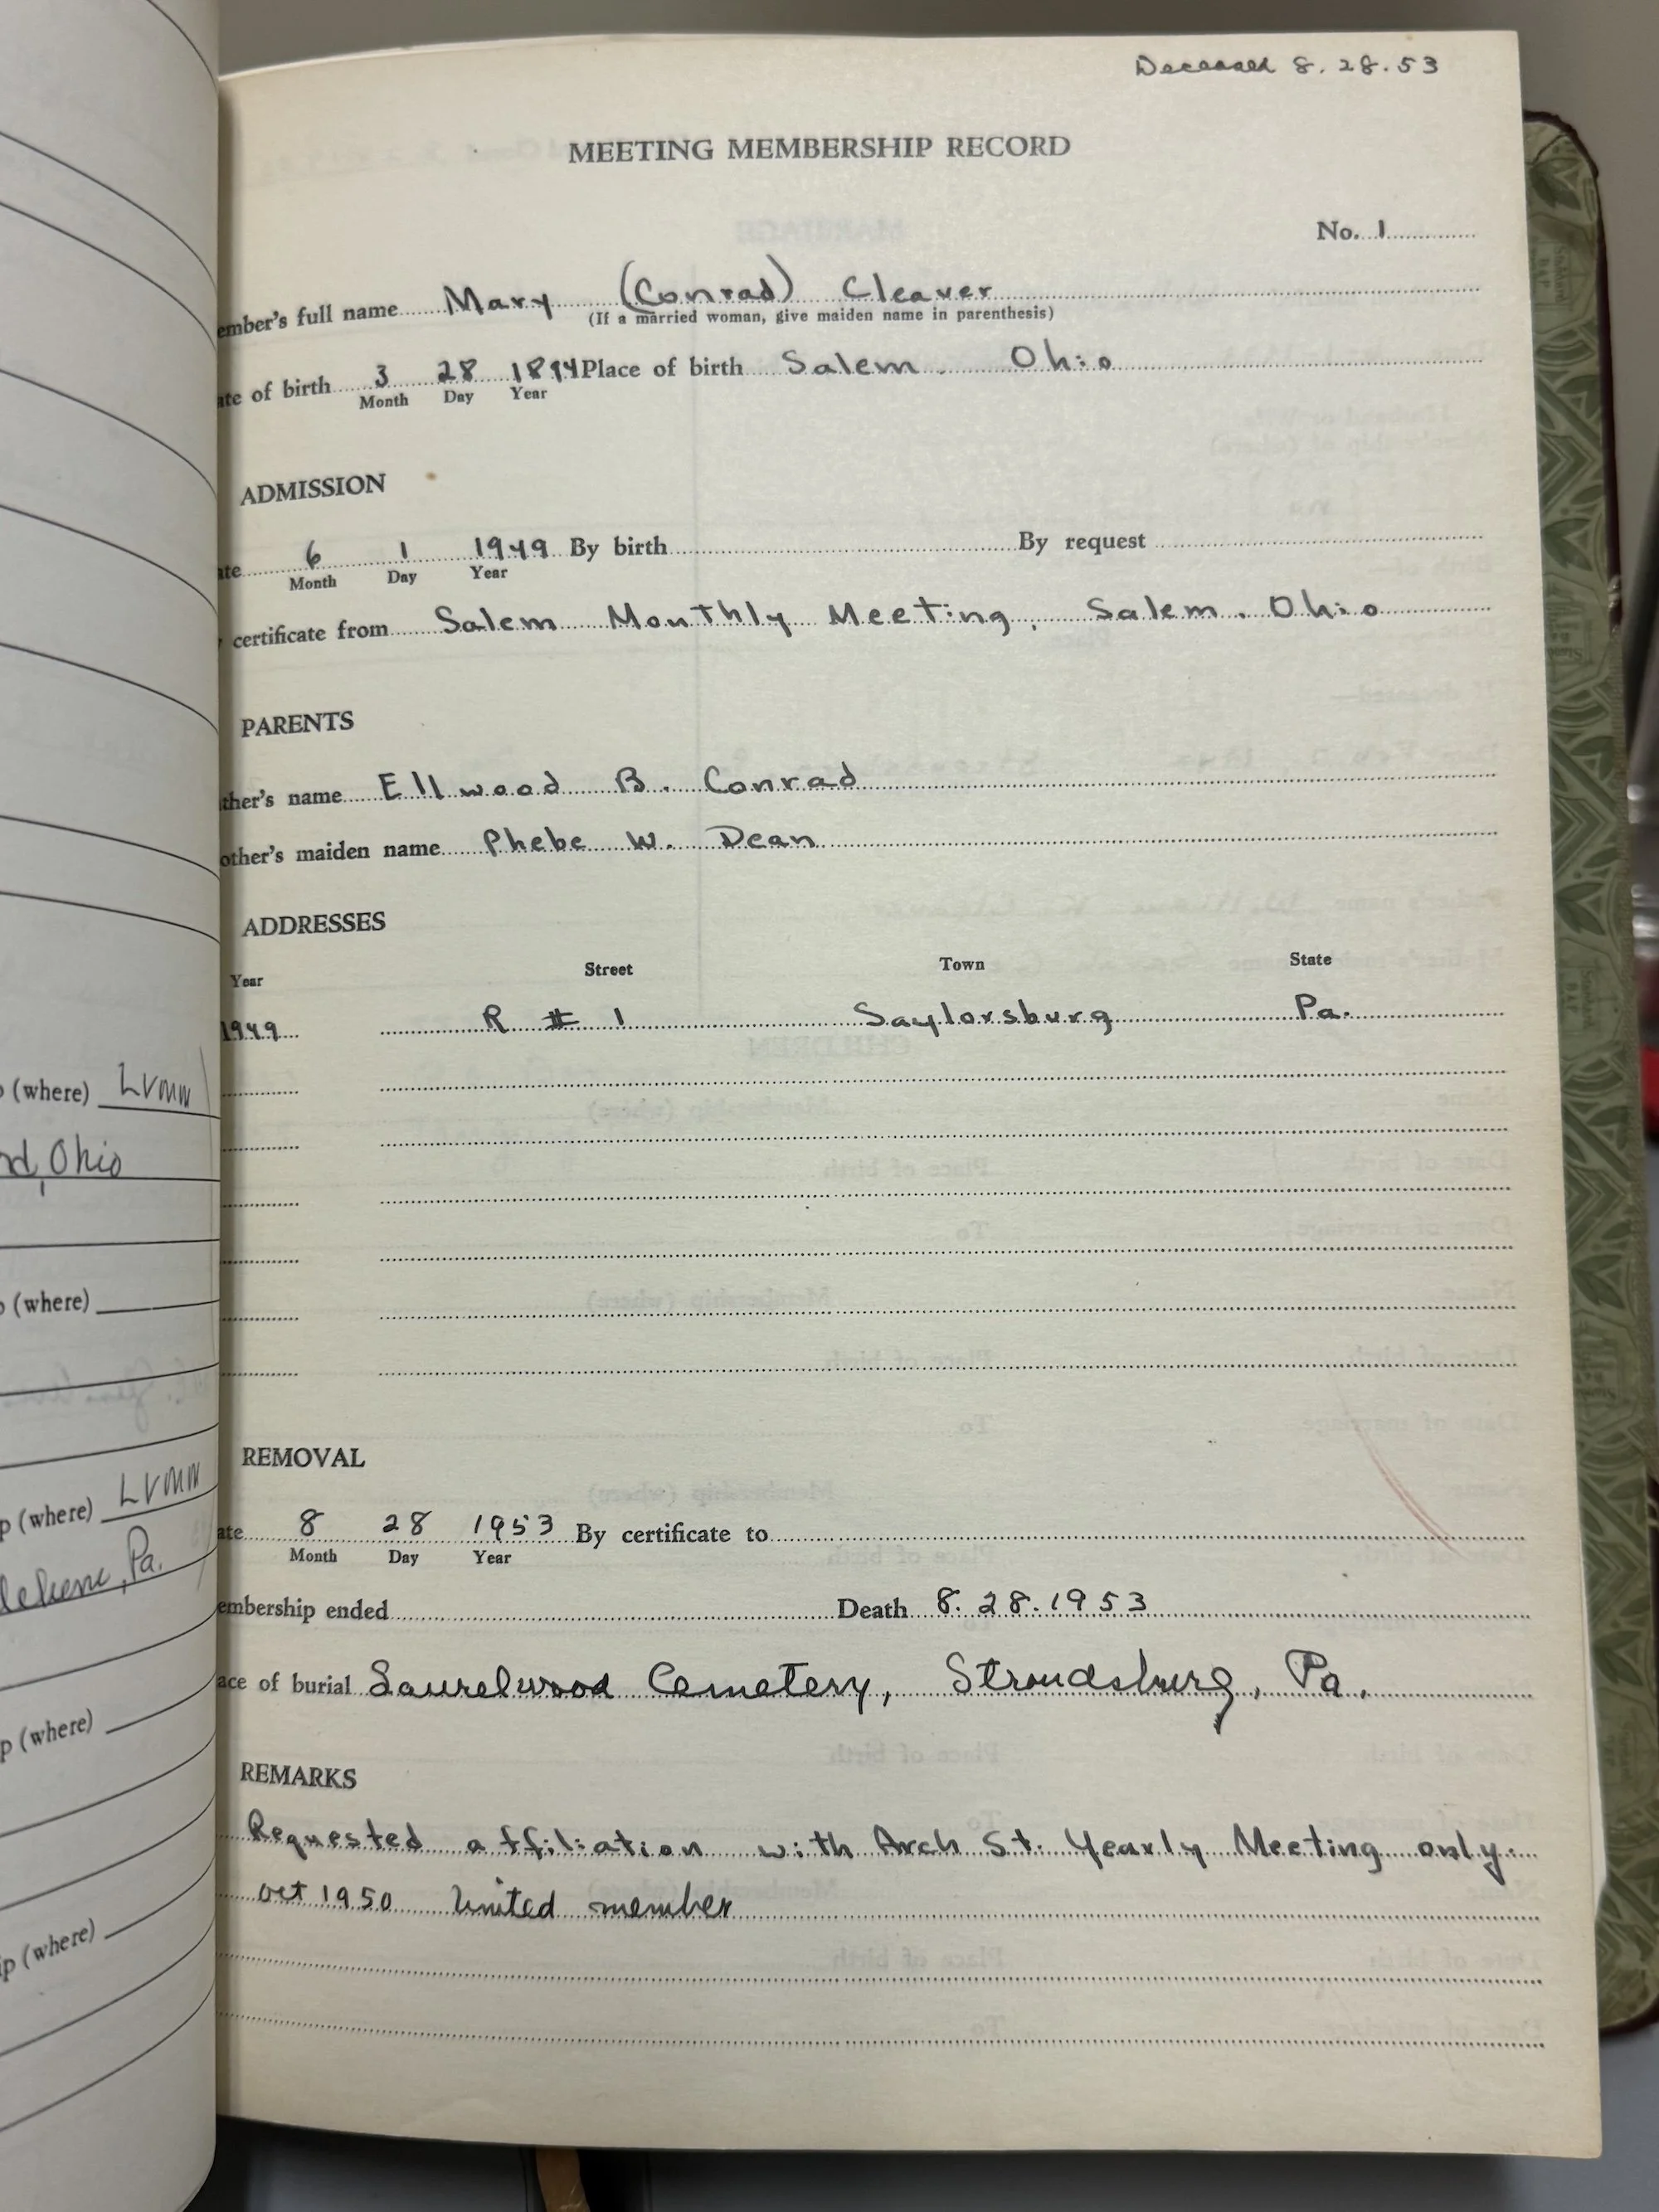 Deceased 8.28.53
MEETING MEMBERSHIP RECORD
No. 1
ember's full name Mary (Conrad) Cleaver
(If a married woman, give maiden name in parenthesis)
ate of birth 3 28 1894 Place of birth Salem. Ohio
Month Day Year
ADMISSION
ate 6 1 1949 By birth By request
Month Day Year
certificate from Salem Monthly Meeting, Salem. Ohio
PARENTS
ther's name Ellwood B. Conrad
other's maiden name Phebe W. Dean
ADDRESSES
Year Street Town State
1949 R # 1 Saylorsburg Pa.
REMOVAL
ate 8 28 1953 By certificate to
Month Day Year
embership ended Death 8.28.1953
ace of burial Laurelwood Cemetery, Stroudsburg, Pa.
REMARKS
Requested affiliation with Arch St. Yearly Meeting only.
Oct 1950 United member
(where) LVMM
nd, Ohio
(where)
p (where) LVMM
Pa.
p (where)
ip (where)